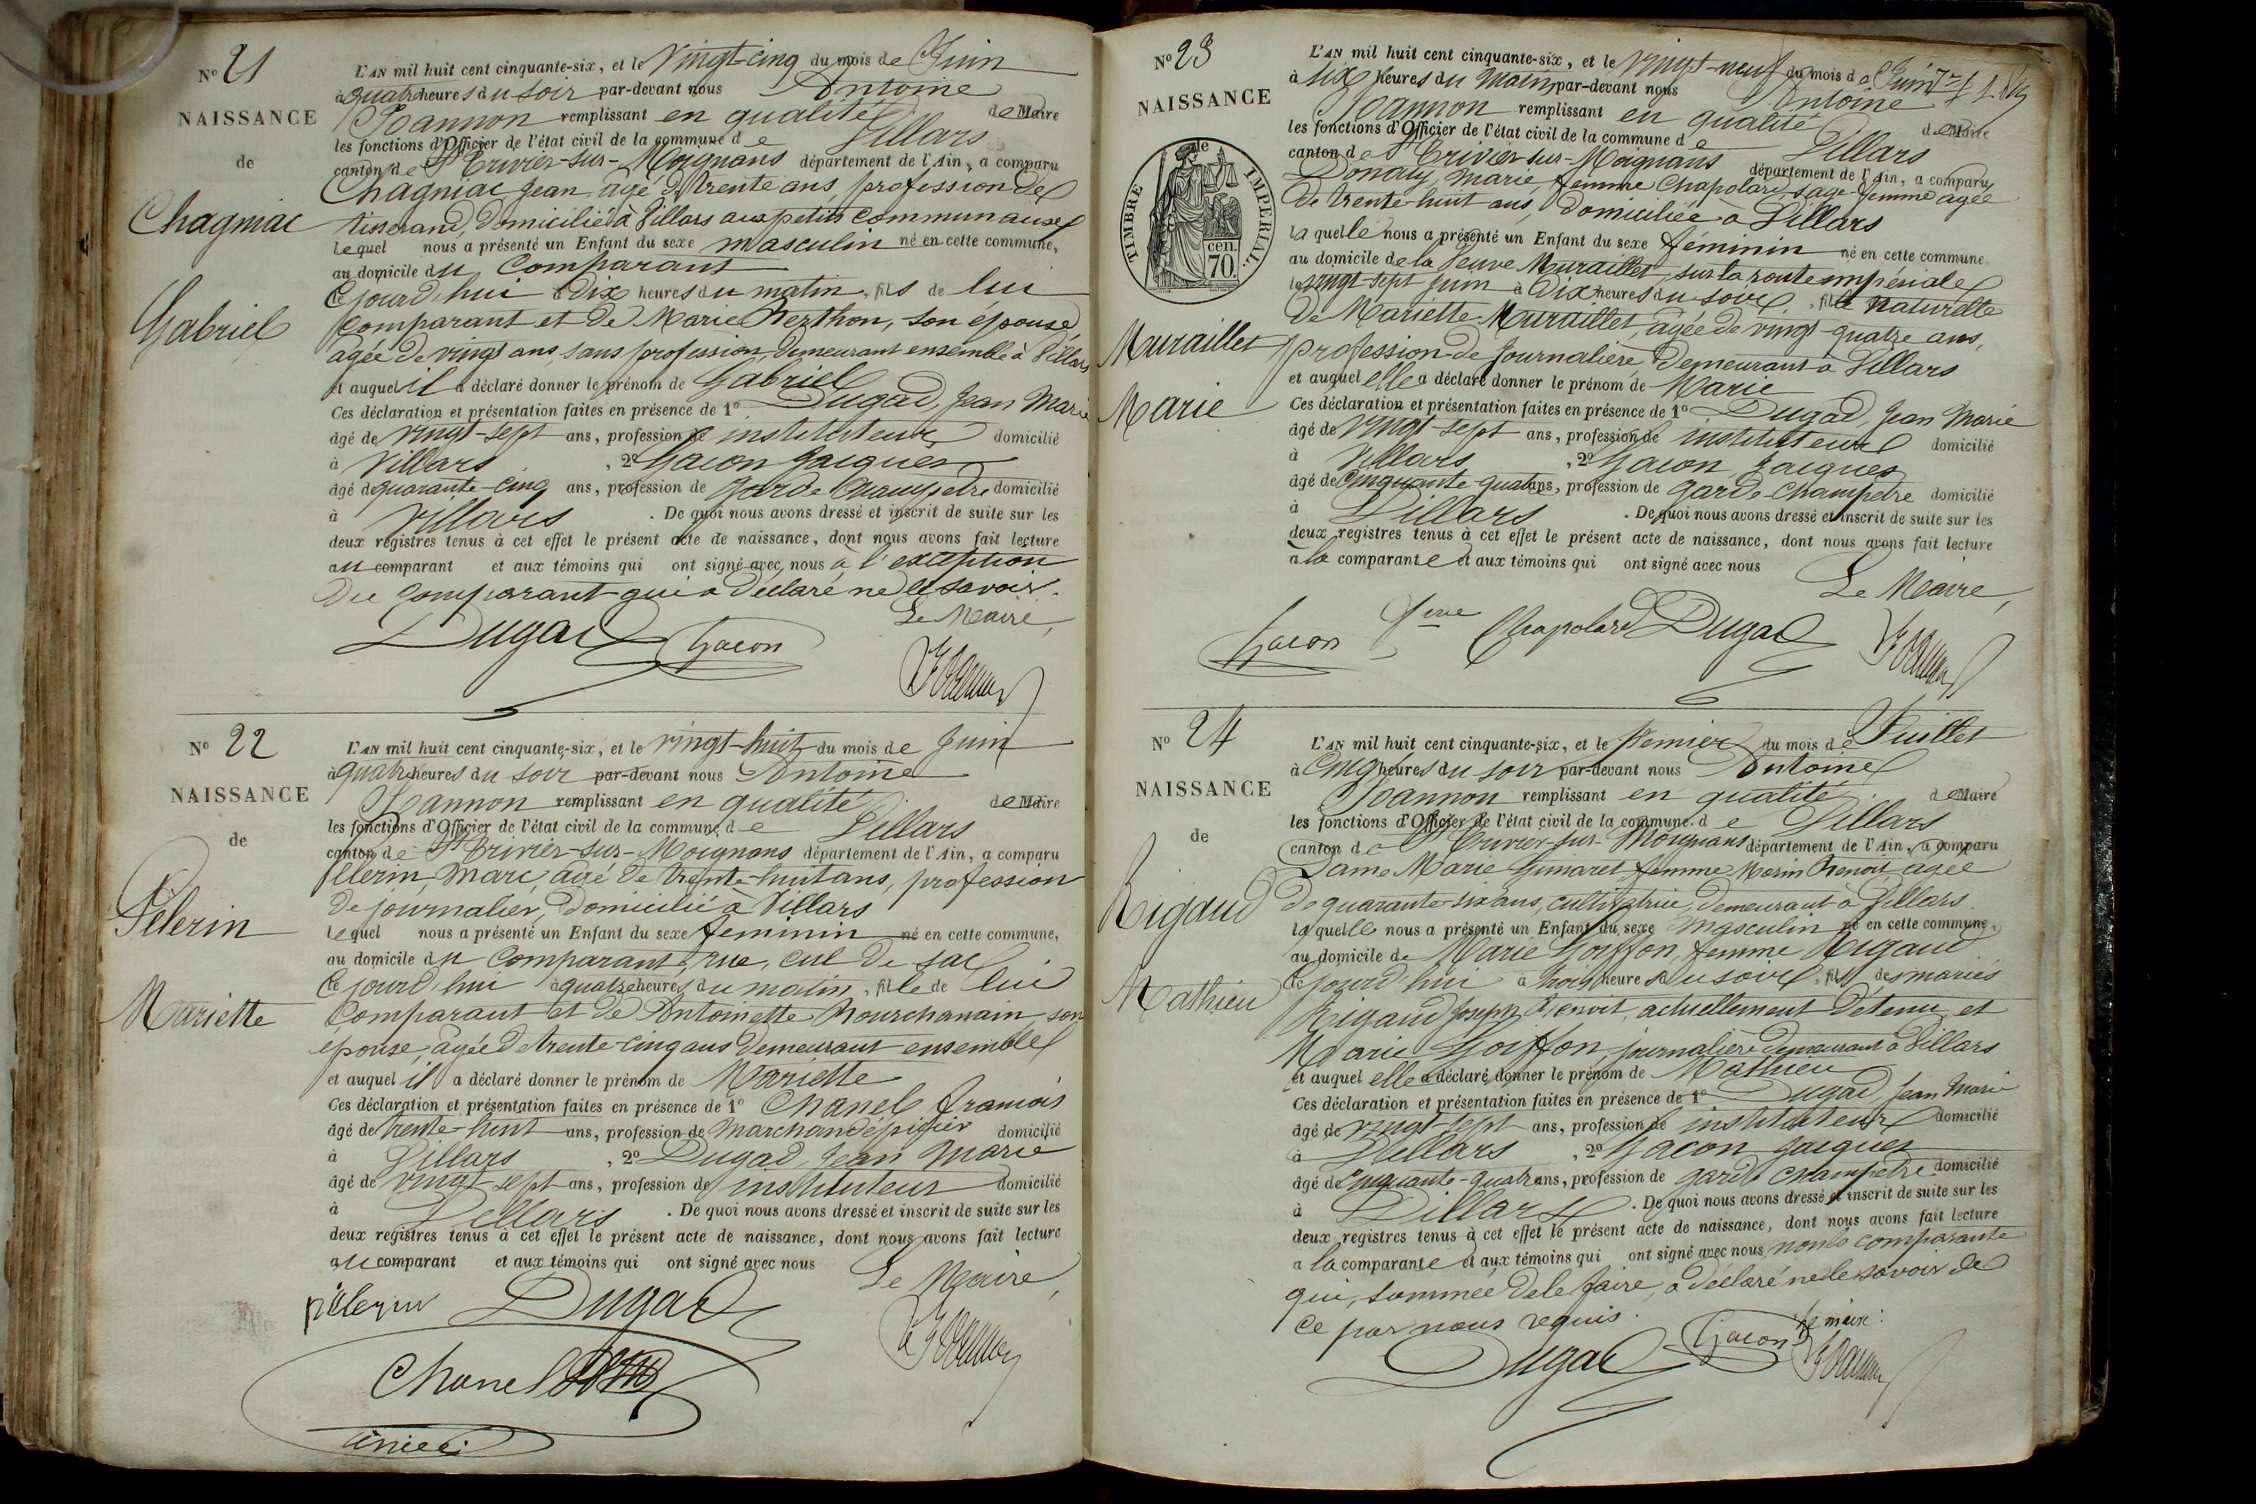 N° 21
NAISSANCE
de
Chagniac
Gabriel
L'AN mil huit cent cinquante-six, et le Vingt-cinq du mois de Juin
à quatre heures du soir par-devant nous Antoine
Joannon remplissant en qualité de Maire
les fonctions d'Officier de l'état civil de la commune de Villars
canton de St Trivier-sur-Moignans département de l'Ain, a comparu
Chagniac Jean âgé de trente ans, profession de
tisserand, domicilié à Villars aux petits communaux
lequel nous a présenté un Enfant du sexe masculin né en cette commune,
au domicile du Comparant
Ce jourd'hui à dix heures du matin, fils de lui
Comparant et de Marie Berthon, son épouse,
âgée de vingt ans, sans profession, demeurant ensemble à Villars
et auquel il a déclaré donner le prénom de Gabriel
Ces déclaration et présentation faites en présence de 1° Dugad, Jean Marie
âgé de vingt-sept ans, profession de instituteur domicilié
à Villars, 2° Gacon Jacques
âgé de quarante-cinq ans, profession de garde Champetre domicilié
à Villars. De quoi nous avons dressé et inscrit de suite sur les
deux registres tenus à cet effet le présent acte de naissance, dont nous avons fait lecture
au comparant et aux témoins qui ont signé avec nous à l'exception
du Comparant qui a déclaré ne le savoir.
Le Maire,
Dugad Gacon
Joannon
N° 22
NAISSANCE
de
Pélerin
Mariette
L'AN mil huit cent cinquante-six, et le vingt-huit du mois de Juin
à quatre heures du soir par-devant nous Antoine
Joannon remplissant en qualité de Maire
les fonctions d'Officier de l'état civil de la commune de Villars
canton de St Trivier-sur-Moignans département de l'Ain, a comparu
Pélerin, Marc, âgé de trente-huit ans, profession
de journalier, domicilié à Villars
lequel nous a présenté un Enfant du sexe feminin né en cette commune,
au domicile du Comparant, rue, cul de sac
Ce jourd'hui à quatre heures du matin, fille de lui
Comparant et de Antoinette Bourchanain, son
épouse, âgée de trente-cinq ans demeurant ensemble
et auquel il a déclaré donner le prénom de Mariette
Ces déclaration et présentation faites en présence de 1° Chanel francois
âgé de trente-huit ans, profession de marchand épicier domicilié
à Villars, 2° Dugad, Jean Marie
âgé de vingt-sept ans, profession de instituteur domicilié
à Villars. De quoi nous avons dressé et inscrit de suite sur les
deux registres tenus à cet effet le présent acte de naissance, dont nous avons fait lecture
au comparant et aux témoins qui ont signé avec nous
Le Maire,
pélerin Dugad
Joannon
Chanel
N° 23
NAISSANCE
de
TIMBRE IMPERIAL.
70 cen.
Muraillet
Marie
L'AN mil huit cent cinquante-six, et le vingt-neuf du mois de Juin
à six heures du matin par-devant nous Antoine
Joannon remplissant en qualité de Maire
les fonctions d'Officier de l'état civil de la commune de Villars
canton de St Trivier-sur-Moignans département de l'Ain, a comparu
Donaty, Marie, femme Chapolard, sage-femme âgée
de trente-huit ans, domiciliée à Villars
la quelle nous a présenté un Enfant du sexe féminin né en cette commune
au domicile de la Veuve Muraillet, sur la route impériale
le vingt-sept Juin à dix heures du soir, fille naturelle
de Mariette Muraillet, âgée de vingt-quatre ans,
profession de Journalière, demeurant à Villars
et auquel elle a déclaré donner le prénom de Marie
Ces déclaration et présentation faites en présence de 1° Dugad, Jean Marie
âgé de vingt-sept ans, profession de instituteur domicilié
à Villars, 2° Gacon Jacques
âgé de cinquante-quatre ans, profession de garde-champetre domicilié
à Villars. De quoi nous avons dressé et inscrit de suite sur les
deux registres tenus à cet effet le présent acte de naissance, dont nous avons fait lecture
à la comparante et aux témoins qui ont signé avec nous
Le Maire,
Gacon fme Chapolard Dugad
Joannon
N° 24
NAISSANCE
de
Rigaud
Mathieu
L'AN mil huit cent cinquante-six, et le Premier du mois de Juillet
à Cinq heures du soir par-devant nous Antoine
Joannon remplissant en qualité de Maire
les fonctions d'Officier de l'état civil de la commune de Villars
canton de St Trivier-sur-Moignans département de l'Ain, a comparu
Dame Marie Guinaret femme Morin Benoit, âgée
de quarante-six ans, cultivatrice, demeurant à Villars.
la quelle nous a présenté un Enfant du sexe masculin né en cette commune,
au domicile de Marie Goiffon, femme Rigaud
Ce jourd'hui à trois heures du soir, fils des mariés
Rigaud Joseph Benoit, actuellement détenu, et
Marie Goiffon, journalière demeurant à Villars
et auquel elle a déclaré donner le prénom de Mathieu
Ces déclaration et présentation faites en présence de 1° Dugad Jean Marie
âgé de vingt-sept ans, profession de instituteur domicilié
à Villars, 2° Gacon Jacques
âgé de cinquante-quatre ans, profession de garde champetre domicilié
à Villars. De quoi nous avons dressé et inscrit de suite sur les
deux registres tenus à cet effet le présent acte de naissance, dont nous avons fait lecture
a la comparante et aux témoins qui ont signé avec nous, non la comparante
qui, sommée de le faire, a déclaré ne le savoir de
ce par nous requis.
le maire:
Dugad Gacon Joannon